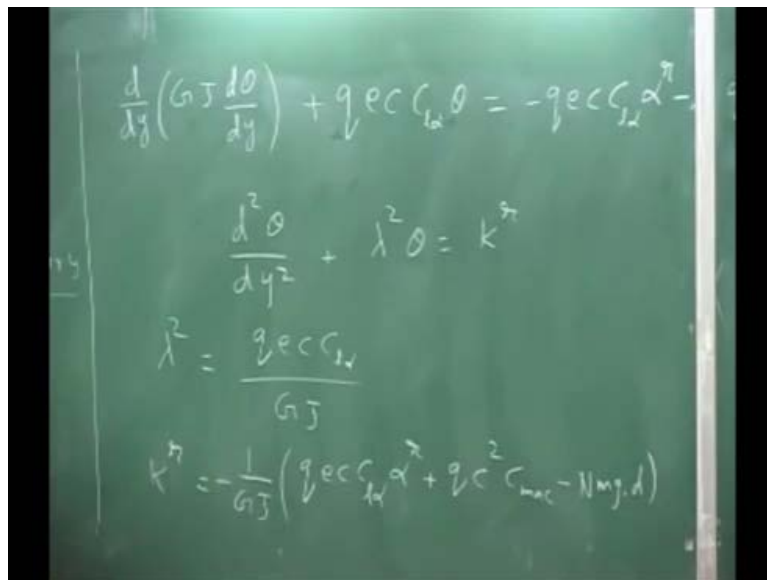 d/dy (GJ dθ/dy) + qec C_lα θ = -qec C_lα α^r -
d²θ/dy² + λ²θ = K^r
λ² = qec C_lα / GJ
K^r = -1/GJ (qec C_lα α^r + qc² C_mac - Nmg.d)